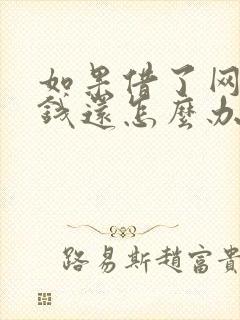 如果借了网
钱還怎麼办
路易斯趙富貴